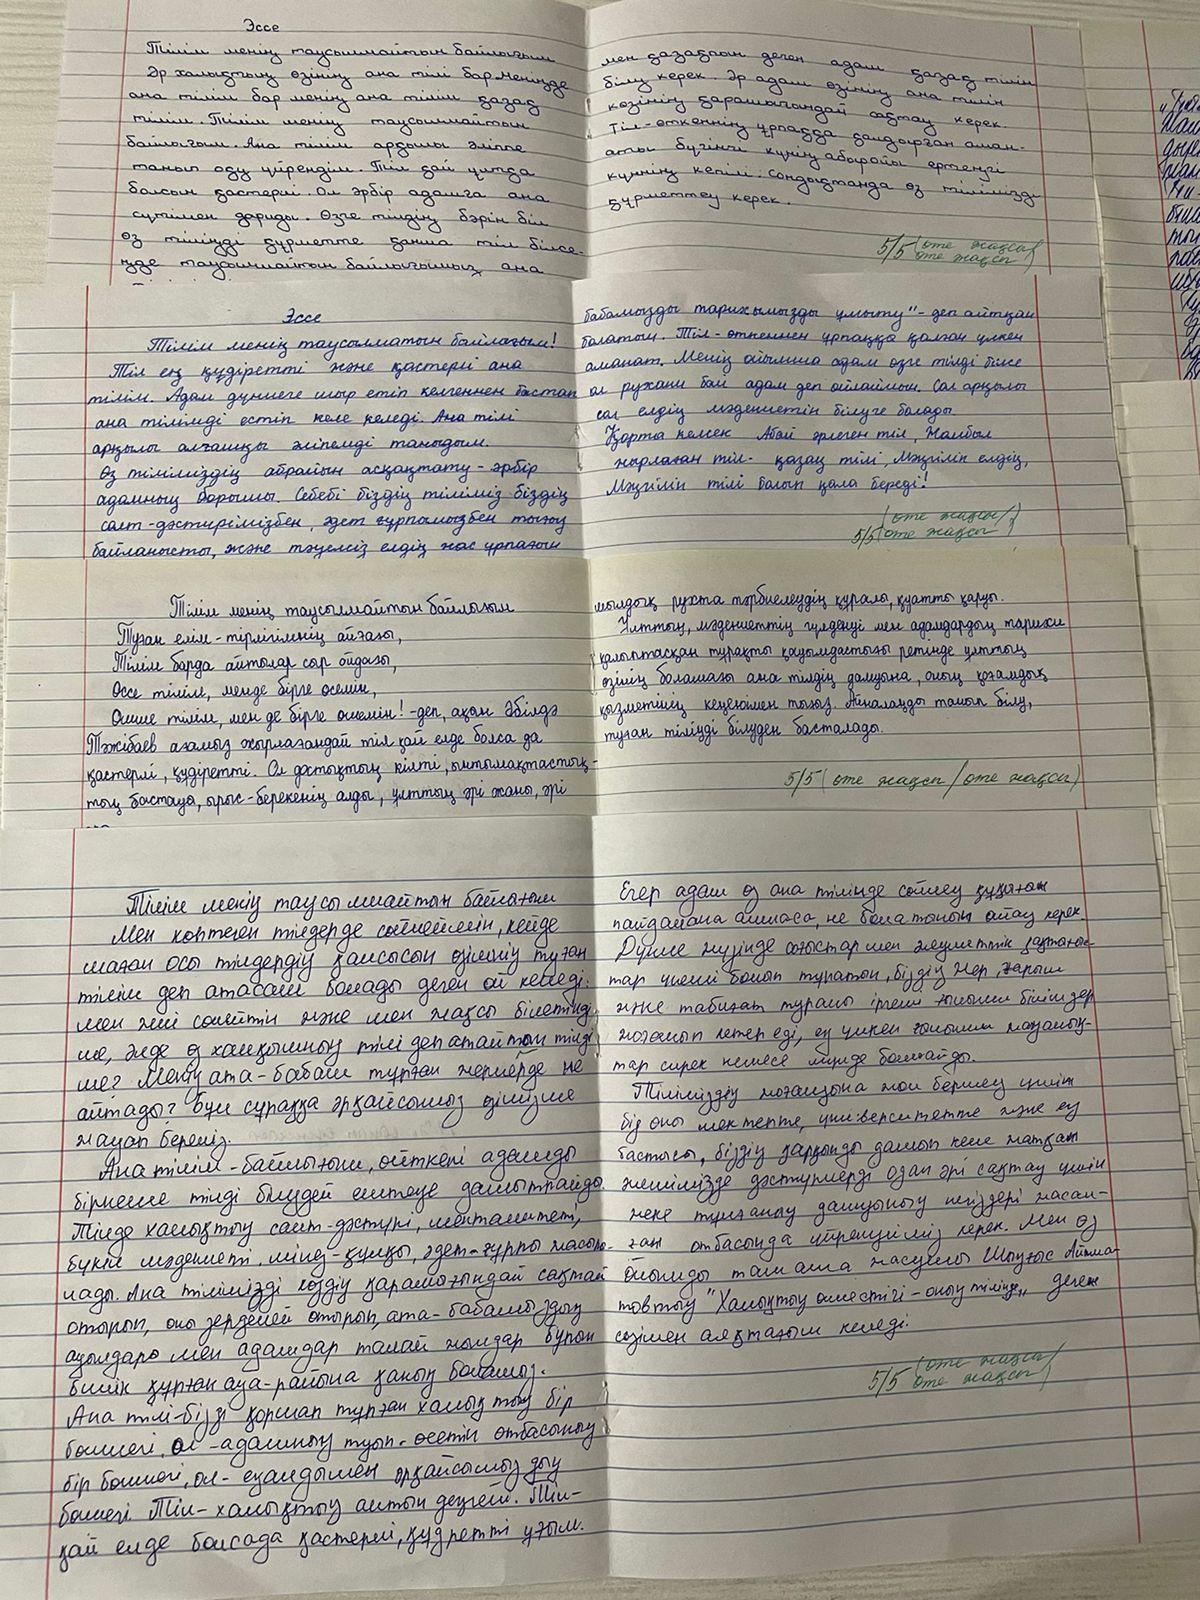 Эссе
Тілім менің таусылмайтын байлығым
Әр халықтың өзінің ана тілі бар. Меніңде
ана тілім бар менің ана тілім қазақ
тілім. Тілім менің таусылмайтын
байлығым. Ана тілім арқылы әліппе
танып оқу үйрендім. Тіл қай ұлтқа
болсын қастерлі. Ол әрбір адамға ана
сүтімен дариды. Өзге тілдің бәрін біл
өз тіліңді құрметте қанша тіл білсе-
ңде таусылмайтын байлығымыз ана
мен қазақпын деген адам қазақ тілін
білу керек. Әр адам өзінің ана тілін
көзінің қарашығындай сақтау керек.
Тіл-өткеннің ұрпаққа қалдырған аман-
аты бүгінгі күннің абыройы ертеңгі
күннің кепілі. Сондықтанда өз тілімізді
құрметтеу керек.
5/5 (өте жақсы/
өте жақсы)
Эссе
Тілім менің таусылматын байлағым!
Тіл ең құдіретті және қастерлі ана
тілім. Адам дүниеге шыр етіп келгеннен бастап
ана тілімді естіп келе келеді. Ана тілі
арқылы алғашқы әліпемді таныдым.
Өз тіліміздің абройын асқақтату - әрбір
адамның борышы. Себебі біздің тіліміз біздің
салт-дәстүрімізбен, әдет ғұрпымызбен тығыз
байланысты, және тәуелсіз елдің жас ұрпағын
бабамызды тарихымызды ұмыту" - деп айтқан
болатын. Тіл - өткеннен ұрпаққа қалған үлкен
аманат. Менің ойымша адам өзге тілді білсе
ол рухани бай адам деп ойлаймын. Сол арқылы
сол елдің мәдениетін білуге болады
Қорта келсек Абай әрлеген тіл, Жамбыл
жырлаған тіл - қазақ тілі, Мәңгілік елдің,
Мәңгілік тілі болып қала береді!
5/5 (өте жақсы/
өте жақсы)
Тілім менің таусылмайтын байлығым
Туған елім - тірлігімнің айғағы,
Тілім барда айтылар сыр ойдағы,
Өссе тілім, менде бірге өсемін,
Өшсе тілім, мен де бірге өшемін! - деп, ақын Әбілдә
Тәжібаев ағамыз жырлағандай тіл қай елде болса да
қастерлі, құдіретті. Ол достықтың кілті, ынтымақтастық-
тың бастауы, ырыс-берекенің алды, ұлттың әрі жаны, әрі
мылдық рухта тәрбиелеудің құралы, қуатты қаруы.
Ұлттың, мәдениеттің гүлденуі мен адамдардың тарихи
қалыптасқан тұрақты қауымдастығы ретінде ұлттың
өзінің болашағы ана тілдің дамуына, оның қоғамдық
қызметінің кеңеюімен тығыз. Айналаңды танып білу,
туған тіліңді білуден басталады.
5/5 (өте жақсы/өте жақсы)
Тілім менің таусылмайтын байлығым
Мен көптеген тілдерде сөйлеймін, кейде
маған осы тілдердің қайсысын өзімнің туған
тілім деп атасам болады деген ой келеді:
мен жиі сөлейтін және мен жақсы білетінді
ме, әлде өз халқымның тілі деп атайтын тілді
ме? Менің ата-бабам тұрған жерлерде не
айтады? Бұл сұраққа әрқайсымыз өзімізше
жауап береміз.
Ана тілім - байлығым, өйткені адамды
бірнеше тілді білудей ештеңе дамытпайды.
Тілде халықтың салт-дәстүрі, менталитеті,
бүкіл мәдениеті, мінез-құлқы, әдет-ғұрпы жасыры-
нады. Ана тілімізді көздің қарашығындай сақтай
отырып, оны зерделей отырып, ата-бабамыздың
ауылдары мен адамдар талай жылдар бұрын
билік құрған ауа-райына қанық боламыз.
Ана тілі - бізді қоршап тұрған халықтың бір
бөлшегі, ол - адамның туып-өсетін отбасының
бір бөлшегі, ол - ежелдымен әрқайсымыздың
бөлшегі. Тіл - халықтың алтын деңгейі. Тіл -
қай елде болсада қастерлі, құдретті ұғым.
Егер адам өз ана тілінде сөйлеу құқығын
пайдалана алмаса, не болатынын ойлау керек.
Дүние жүзінде соғыстар мен әлеуметтік қақтығыс-
тар үнемі болып тұратын, біздің Жер, Ғарыш
және табиғат туралы іргелі ғылыми білімдер
жоғалып кетер еді, ең үлкен ғылыми жаңалық-
тар сирек немесе мүлде болмайды.
Тіліміздің жоғалуына жол бермеу үшін
біз оны мектепте, университетте және ең
бастысы, біздің қарқынды дамып келе жатқан
әлемімізде дәстүрлерді одан әрі сақтау үшін
жеке тұлғаның дамуының негіздері жасал-
ған отбасында үйренуіміз керек. Мен өз
ойымды тамаша жазушы Шыңғыс Айтма-
товтың "Халықтың өлместігі - оның тілінде„ деген
сөзімен аяқтағым келеді.
5/5 (өте жақсы/
өте жақсы)